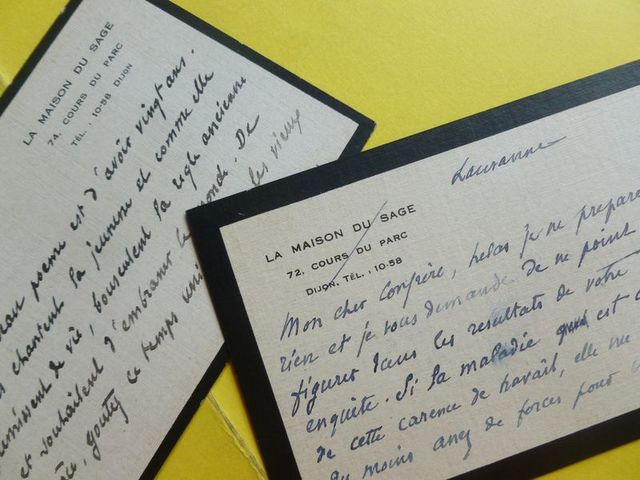 LA MAISON DU SAGE
74, COURS DU PARC
TÉL. 10-58 DIJON
poème est d'avoir vingt ans.
chantent la jeunesse et comme elle
de vie, bousculent la règle ancienne
et souhaitent d'embrasser le monde. De
goutez ce temps les vieux
Lausanne
LA MAISON DU SAGE
72, COURS DU PARC
DIJON, TÉL. 10-58
Mon cher Confrère, helas je ne prepare
rien et je vous demande de ne point
figurer dans les resultats de votre
enquête. Si la maladie est
de cette carence de travail, elle me
du moins assez de forces pour